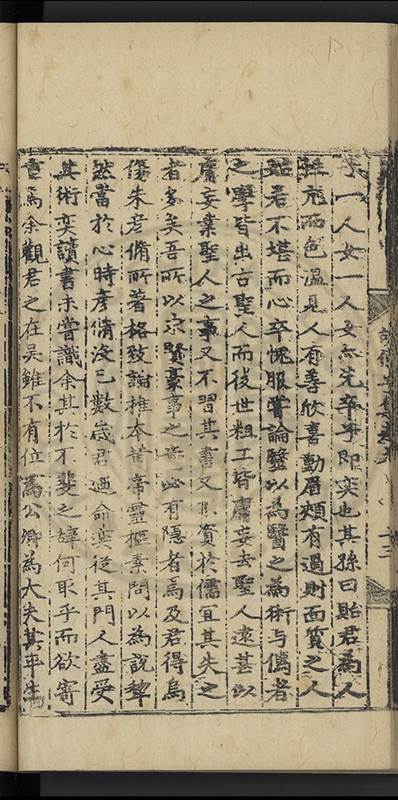 子一人女一人女亦先卒子即奕也其孫曰貽君為人
亢而色溫見人有善欣喜動眉頰有過則面質之人
始若不堪而心卒愧服嘗論醫以為醫之為術与儒者
之學皆出古聖人而後世粗工皆庸妄去聖人遠甚以
庸妄業聖人之事又不習其書又不資於儒宜其失之
者多矣吾所以宗賢豪事之當必有隱者焉及君得烏
傷朱彥脩所著格致論推本黃帝靈樞素問以為說犂
然當於心時彥脩沒已數歲君迺命奕從其門人盡受
其術奕讀書未嘗識余其於不斐之辭何取乎而欲寄
重焉余觀君之在吳雖不有位為公卿為大夫其平生
十三